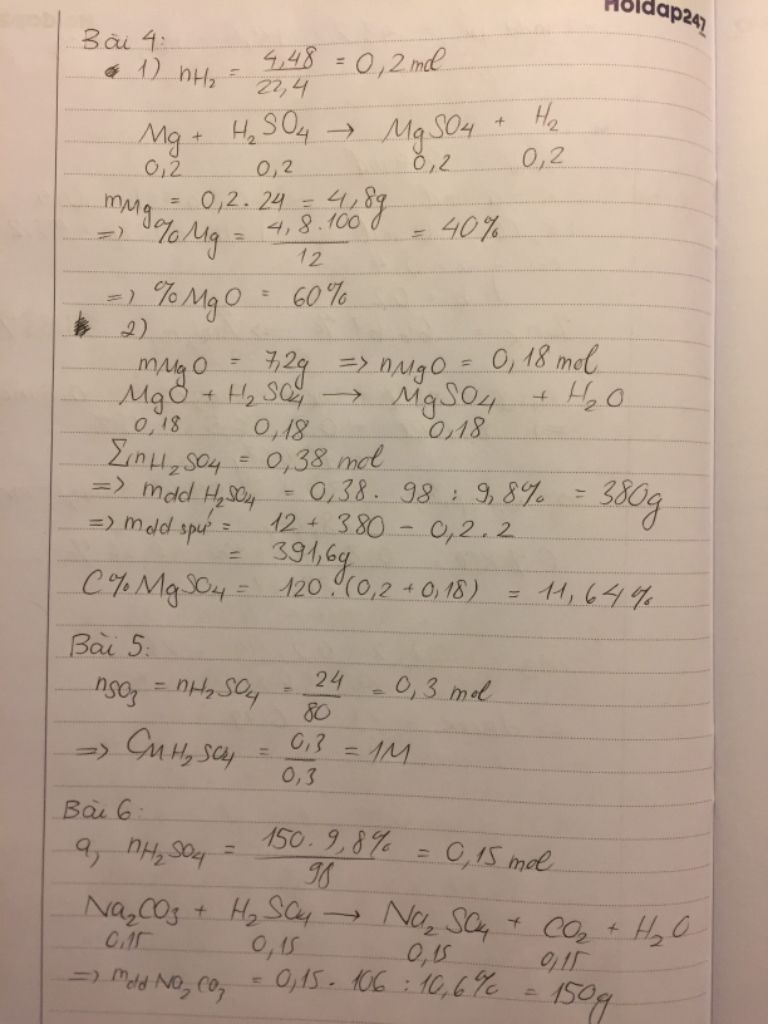 Hoidap247
Bài 4:
1) nH₂ = 4,48/22,4 = 0,2 mol
Mg + H₂SO₄ → MgSO₄ + H₂
0,2 0,2 0,2 0,2
mMg = 0,2 . 24 = 4,8g
=> %Mg = 4,8 . 100/12 = 40%
=> %MgO = 60%
2)
mMgO = 7,2g => nMgO = 0,18 mol
MgO + H₂SO₄ → MgSO₄ + H₂O
0,18 0,18 0,18
ΣnH₂SO₄ = 0,38 mol
=> mdd H₂SO₄ = 0,38 . 98 : 9,8% = 380g
=> mdd spứ = 12 + 380 - 0,2 . 2
= 391,6g
C% MgSO₄ = 120 . (0,2 + 0,18) = 11,64%
Bài 5:
nSO₃ = nH₂SO₄ = 24/80 = 0,3 mol
=> CM H₂SO₄ = 0,3/0,3 = 1M
Bài 6:
a, nH₂SO₄ = 150 . 9,8%/98 = 0,15 mol
Na₂CO₃ + H₂SO₄ → Na₂SO₄ + CO₂ + H₂O
0,15 0,15 0,15 0,15
=> mdd Na₂CO₃ = 0,15 . 106 : 10,6% = 150g